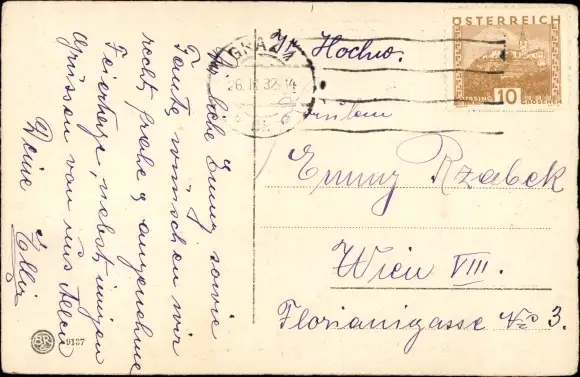 Dir liebe Emmy sowie
Tante, wünschen wir
recht frohe & angenehme
Feiertage, nebst innigen
Grüssen von uns Allen
Deine
Elly
GRAZ 1
26. IV 32-14
Ihr Hochw.
Fräulein
Emmy Rzabek
Wien VIII.
Florianigasse No 3.
ÖSTERREICH
GÜSSING
10
GROSCHEN
BR
9137